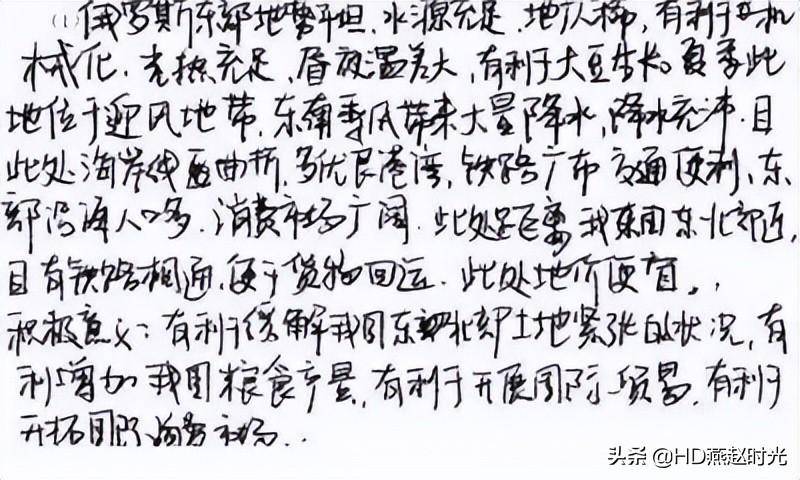 (1)俄罗斯东部地势平坦,水源充足,地广人稀,有利于机
械化.光热充足,昼夜温差大,有利于大豆生长。夏季此
地位于迎风地带,东南季风带来大量降水,降水充沛.且
此处海岸线曲折,多优良港湾,铁路广布交通便利、东
部沿海人口多.消费市场广阔.此处距离我国东北部近,
且有铁路相通,便于货物回运.此处地价便宜。
积极意义:有利于缓解我国东北部土地紧张的状况,有
利增加我国粮食产量,有利于开展国际贸易,有利于
开拓国际贸易市场..
头条@HD燕赵时光